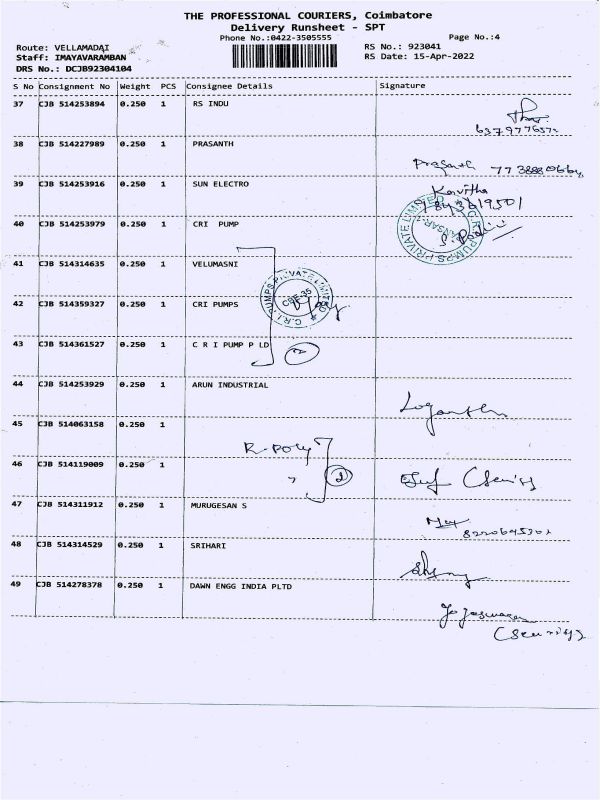 THE PROFESSIONAL COURIERS, Coimbatore
Delivery Runsheet - SPT
Phone No.:0422-3505555
Page No.:4
Route: VELLAMADAI
RS No.: 923041
Staff: IMAYAVARAMBAN
RS Date: 15-Apr-2022
DRS No.: DCJB92304104
S No Consignment No Weight PCS Consignee Details Signature
37 CJB 514253894 0.250 1 RS INDU
38 CJB 514227989 0.250 1 PRASANTH
Prasanth
39 CJB 514253916 0.250 1 SUN ELECTRO
Kavitha
40 CJB 514253979 0.250 1 CRI PUMP
C.R.I. PUMPS PRIVATE LIMITED
41 CJB 514314635 0.250 1 VELUMASNI
C.R.I. PUMPS PRIVATE LIMITED
CBE-35
42 CJB 514359327 0.250 1 CRI PUMPS
43 CJB 514361527 1 C R I PUMP P LD
0.250
44 CJB 514253929 0.250 1 ARUN INDUSTRIAL
45 CJB 514063158 0.250 1
R-Poly
2
46 CJB 514119009 0.250 1
47 CJB 514311912 0.250 1 MURUGESAN S
48 CJB 514314529 0.250 1 SRIHARI
49 CJB 514278378 0.250 1 DAWN ENGG INDIA PLTD